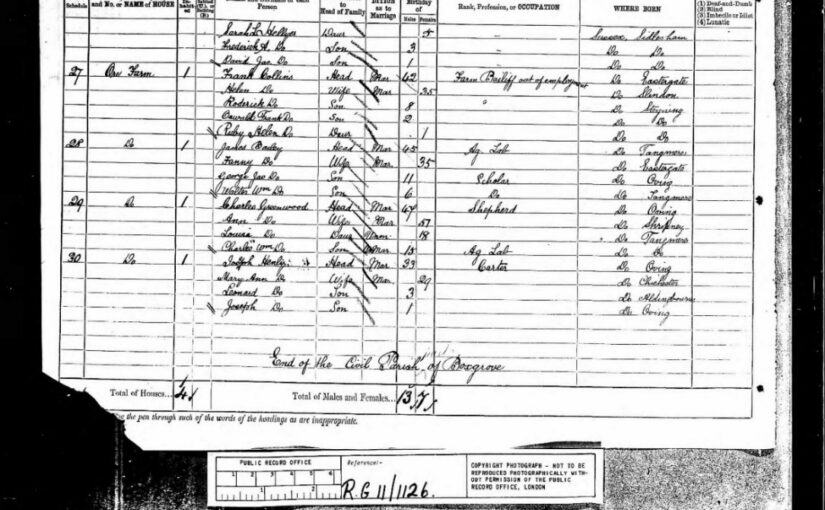 Schedule and No. or NAME of HOUSE Person to Head of Family as to Marriage Birthday of Males Females Rank, Profession, or OCCUPATION WHERE BORN (1) Deaf-and-Dumb
(2) Blind
(3) Imbecile or Idiot
(4) Lunatic
Sarah Hellyer Daur 5 Sussex, Sidlesham
Frederick A. Do Son 3 Do Do
David Jas Do Son 1 Do Do
27 Ovr Farm 1 Frank Collins Head Mar 42 Farm Bailiff out of employment Do Eastergate
Helen Do Wife Mar 35 Do Slindon
Roderick Do Son 8 " Do Steyning
Oswald Frank Do Son 2 Do Do
Ruby Helen Do Daur 1 Do Do
28 Do 1 James Bailey Head Mar 45 Ag Lab Do Tangmere
Fanny Do Wife Mar 35 Do Eastergate
George Jas Do Son 11 Scholar Do Oving
Walter Wm Do Son 6 Do Do Tangmere
29 Do 1 Charles Greenwood Head Mar 47 Shepherd Do Oving
Ann Do Wife Mar 57 Do Shripney
Louisa Do Daur Unm 18 Do Tangmere
Charles Wm Do Son 15 Ag Lab Do Do
30 Do 1 Joseph Henly Head Mar 33 Carter Do Oving
Mary Ann Do Wife Mar 29 Do Chichester
Leonard Do Son 3 Do Aldingbourne
Joseph Do Son 1 Do Oving
End of the Civil Parish of Boxgrove
Total of Houses... 4 Total of Males and Females... 13 7
the pen through such of the words of the headings as are inappropriate.
PUBLIC RECORD OFFICE
1 2 3 4 5 6
Reference:-
R.G 11/1126.
COPYRIGHT PHOTOGRAPH - NOT TO BE
REPRODUCED PHOTOGRAPHICALLY WITH-
OUT PERMISSION OF THE PUBLIC
RECORD OFFICE, LONDON